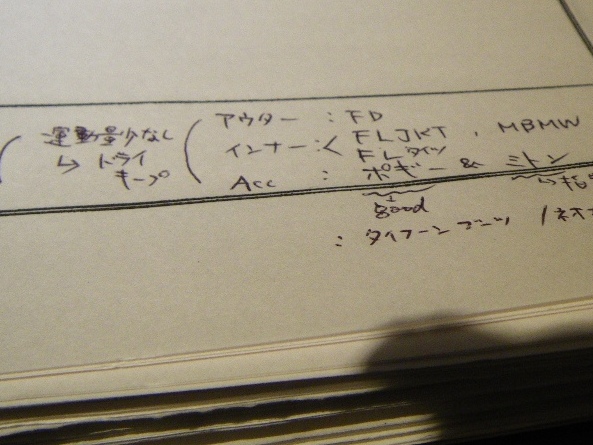 運動量少なし
↳ ドライ
キープ
アウター : FD
インナー : < FL JKT , MBMW
FL タイツ
Acc : ポギー & ミトン
good
: タイフーンブーツ /ネオ